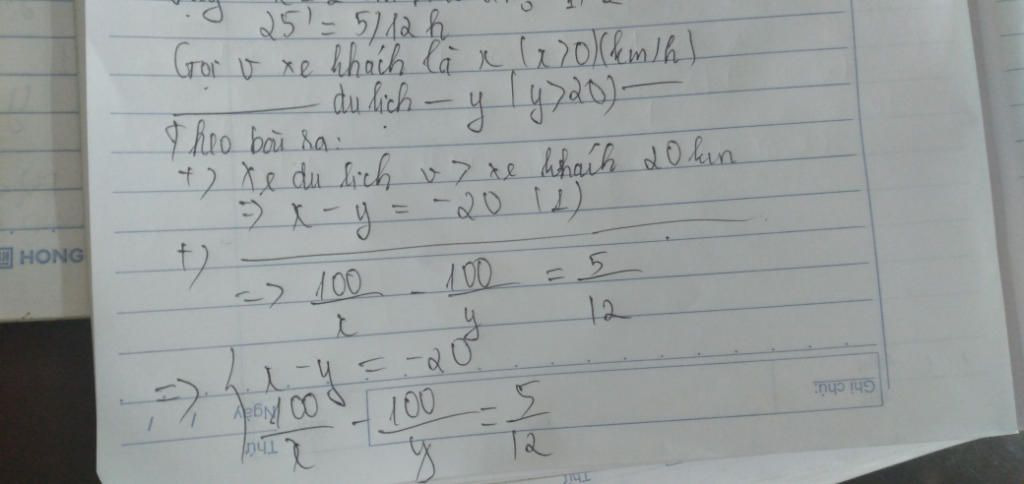 25' = 5/12 h
Gọi v xe khách là x (x>0)(km/h)
du lịch — y (y>20) —
Theo bài ra:
+) Xe du lịch v > xe khách 20 km
=> x - y = -20 (1)
+)
=> 100/x - 100/y = 5/12
=> { x - y = -20
100/x - 100/y = 5/12
HONG
Ghi chú:
Ngày
Thứ
Thứ